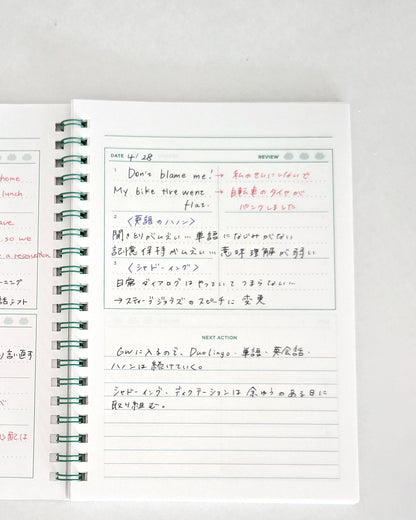 home
lunch
ave
, so we
e a reservation
ーニング
話シフト
り言い直す
が
心配は
DATE 4/28
REVIEW
1
Don't blame me! → 私のせいにしないで
My bike tire went → 自転車のタイヤが
flat. パンクしました
2
〈英語のハノン〉
聞きとりがムズい…単語になじみがない
記憶保持がムズい…意味理解が弱い
3
〈シャドーイング〉
日常ダイアログはやっていてつまらない…
→スティーブジョブズのスピーチに変更
NEXT ACTION
GWに入るので、Duolingo・単語・英会話・
ハノンは続けていく。
シャドーイング・ディクテーションは余ゆうのある日に
取り組む。